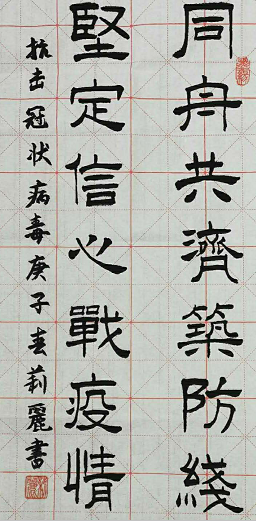 同舟共濟築防綫
堅定信心戰疫情
抗击冠状病毒庚子春莉麗書